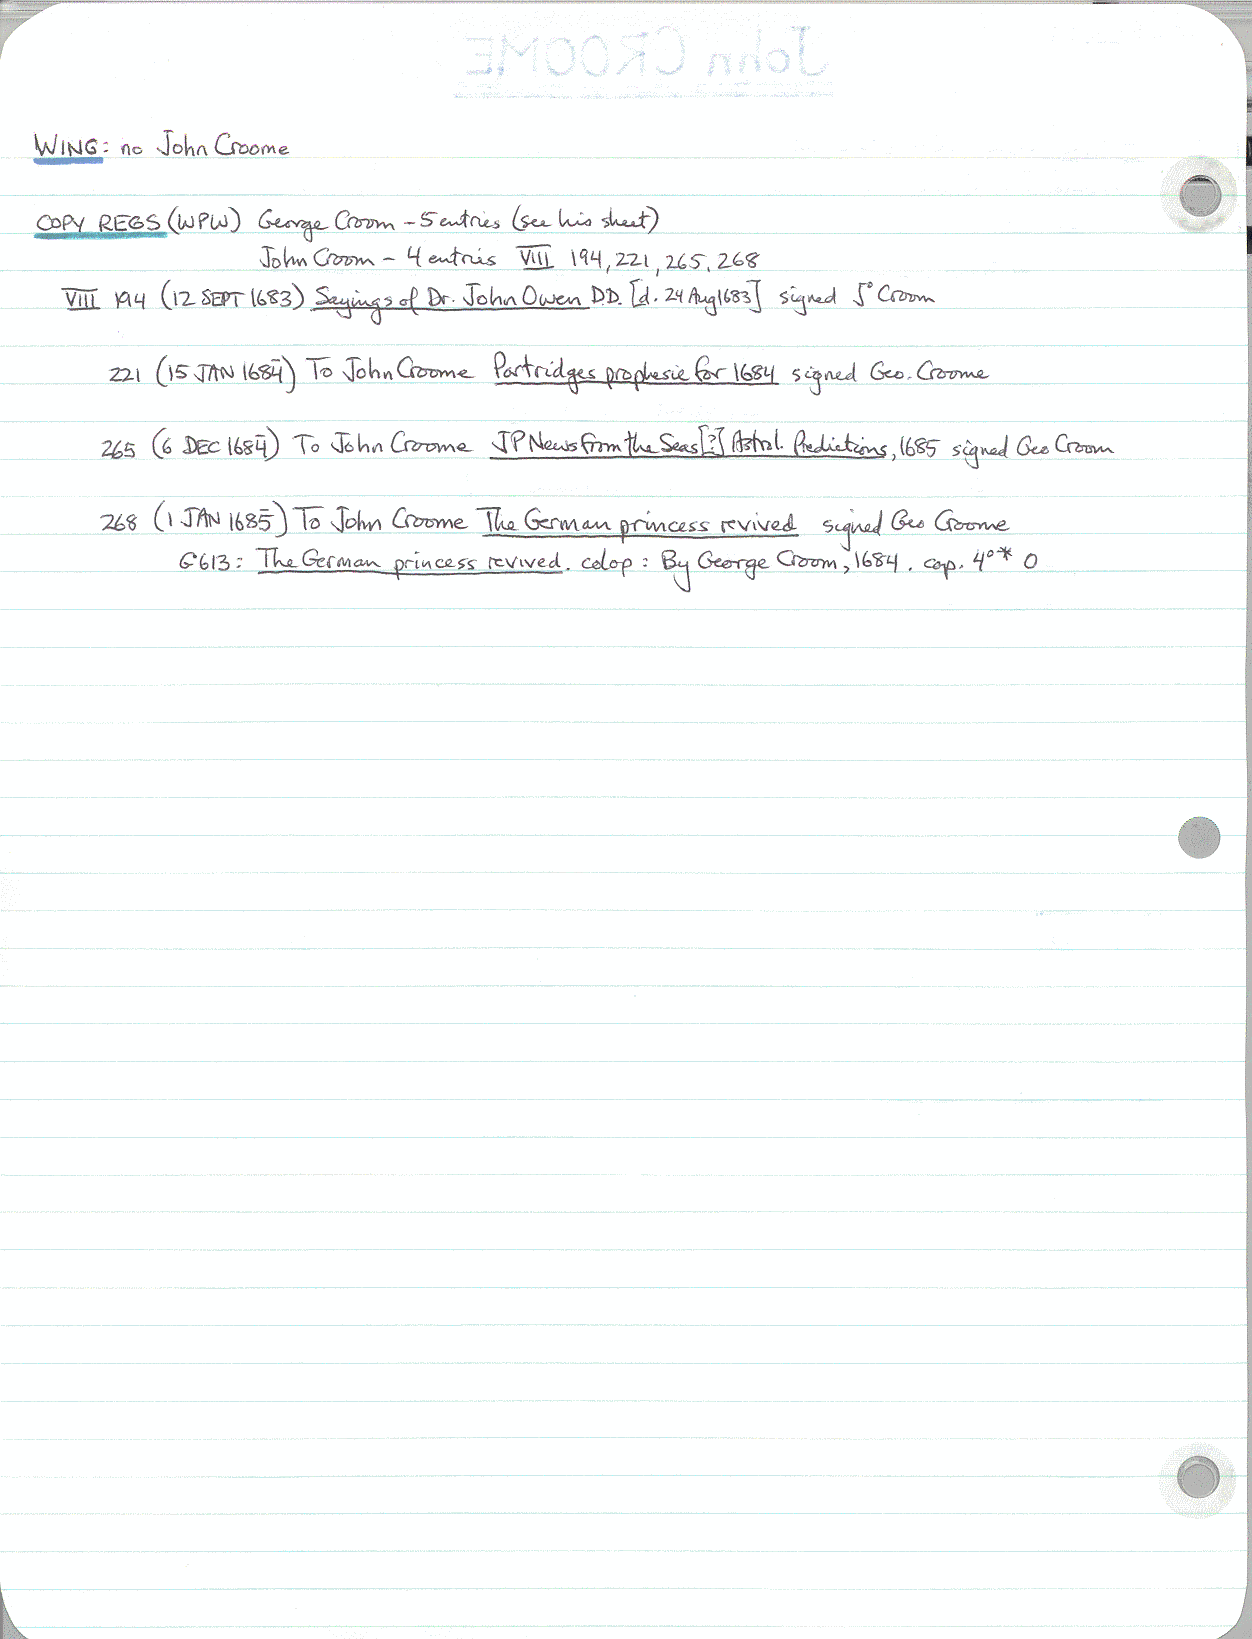 John CROOME
WING: no John Croome
COPY REGS (WPW) George Croom – 5 entries (see his sheet)
John Croom – 4 entries VIII 194, 221, 265, 268
VIII 194 (12 SEPT 1683) Sayings of Dr. John Owen DD. [d. 24 Aug 1683] signed Jº Croom
221 (15 JAN 1684) To John Croome Partridges prophesie for 1684 signed Geo. Croome
265 (6 DEC 1684) To John Croome JP News from the Seas[?] Astrol. Predictions, 1685 signed Geo Croom
268 (1 JAN 1685) To John Croome The German princess revived signed Geo Croome
G613: The German princess revived. colop: By George Croom, 1684. cap. 4º* O